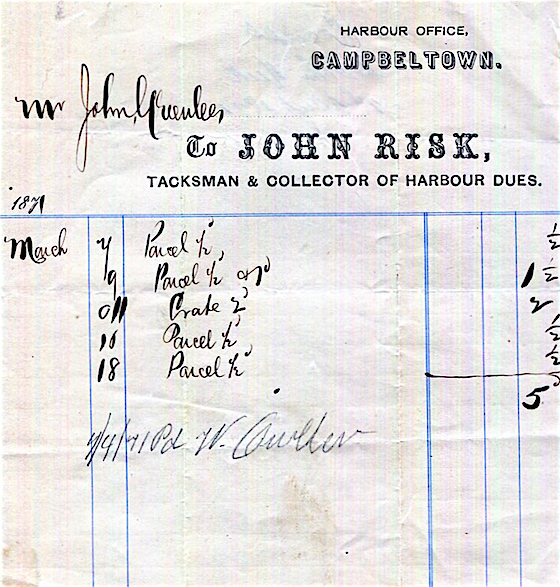 HARBOUR OFFICE,
CAMPBELTOWN.
Mr John Greenlees
To JOHN RISK,
TACKSMAN & COLLECTOR OF HARBOUR DUES.
1871
March 7 Parcel ½ ½
9 Parcel ½ 1 ½
11 Crate 2 2
Parcel ½ ½
18 Parcel ½ ½
5
Pd W.